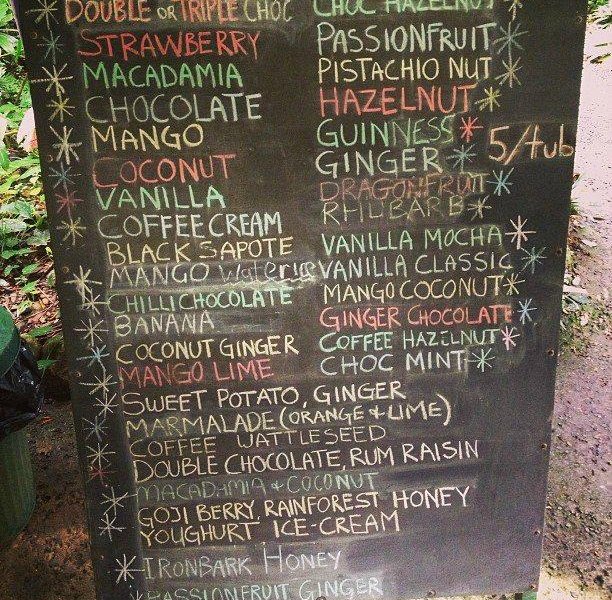 DOUBLE OR TRIPLE CHOC
STRAWBERRY
MACADAMIA
CHOCOLATE
MANGO
COCONUT
VANILLA
COFFEE CREAM
BLACK SAPOTE
MANGO Waterice
CHILLI CHOCOLATE
BANANA
COCONUT GINGER
MANGO LIME
CHOC HAZELNUT
PASSIONFRUIT
PISTACHIO NUT
HAZELNUT
GUINNESS
GINGER
5/tub
DRAGONFRUIT
RHUBARB
VANILLA MOCHA
VANILLA CLASSIC
MANGO COCONUT
GINGER CHOCOLATE
COFFEE HAZELNUT
CHOC MINT
SWEET POTATO, GINGER
MARMALADE (ORANGE & LIME)
COFFEE WATTLESEED
DOUBLE CHOCOLATE, RUM RAISIN
MACADAMIA & COCONUT
GOJI BERRY RAINFOREST HONEY
YOUGHURT ICE-CREAM
IRONBARK HONEY
PASSIONFRUIT GINGER